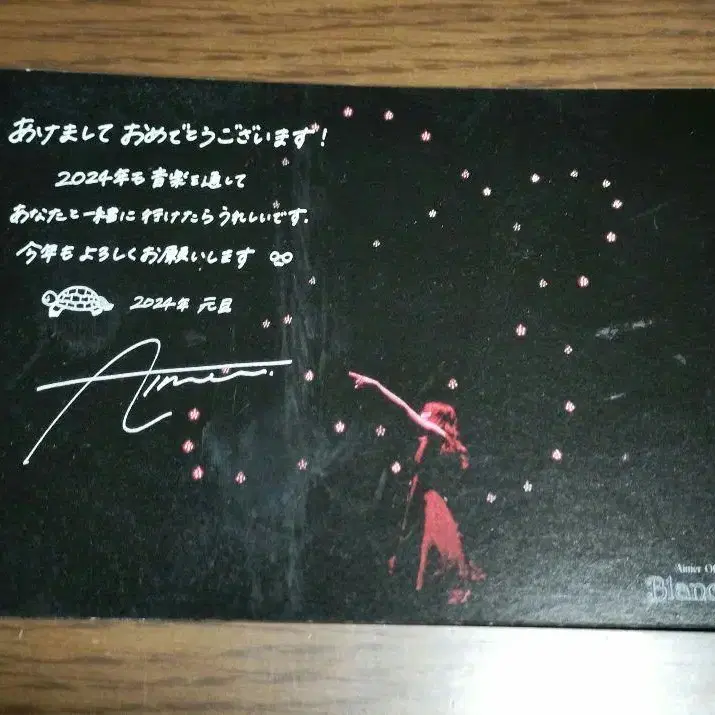 あけまして おめでとうございます!
2024年も 音楽を通して
あなたと一緒に 行けたらうれしいです.
今年も よろしくお願いします
2024年 元旦
Aimer
Aimer Of
Blanc